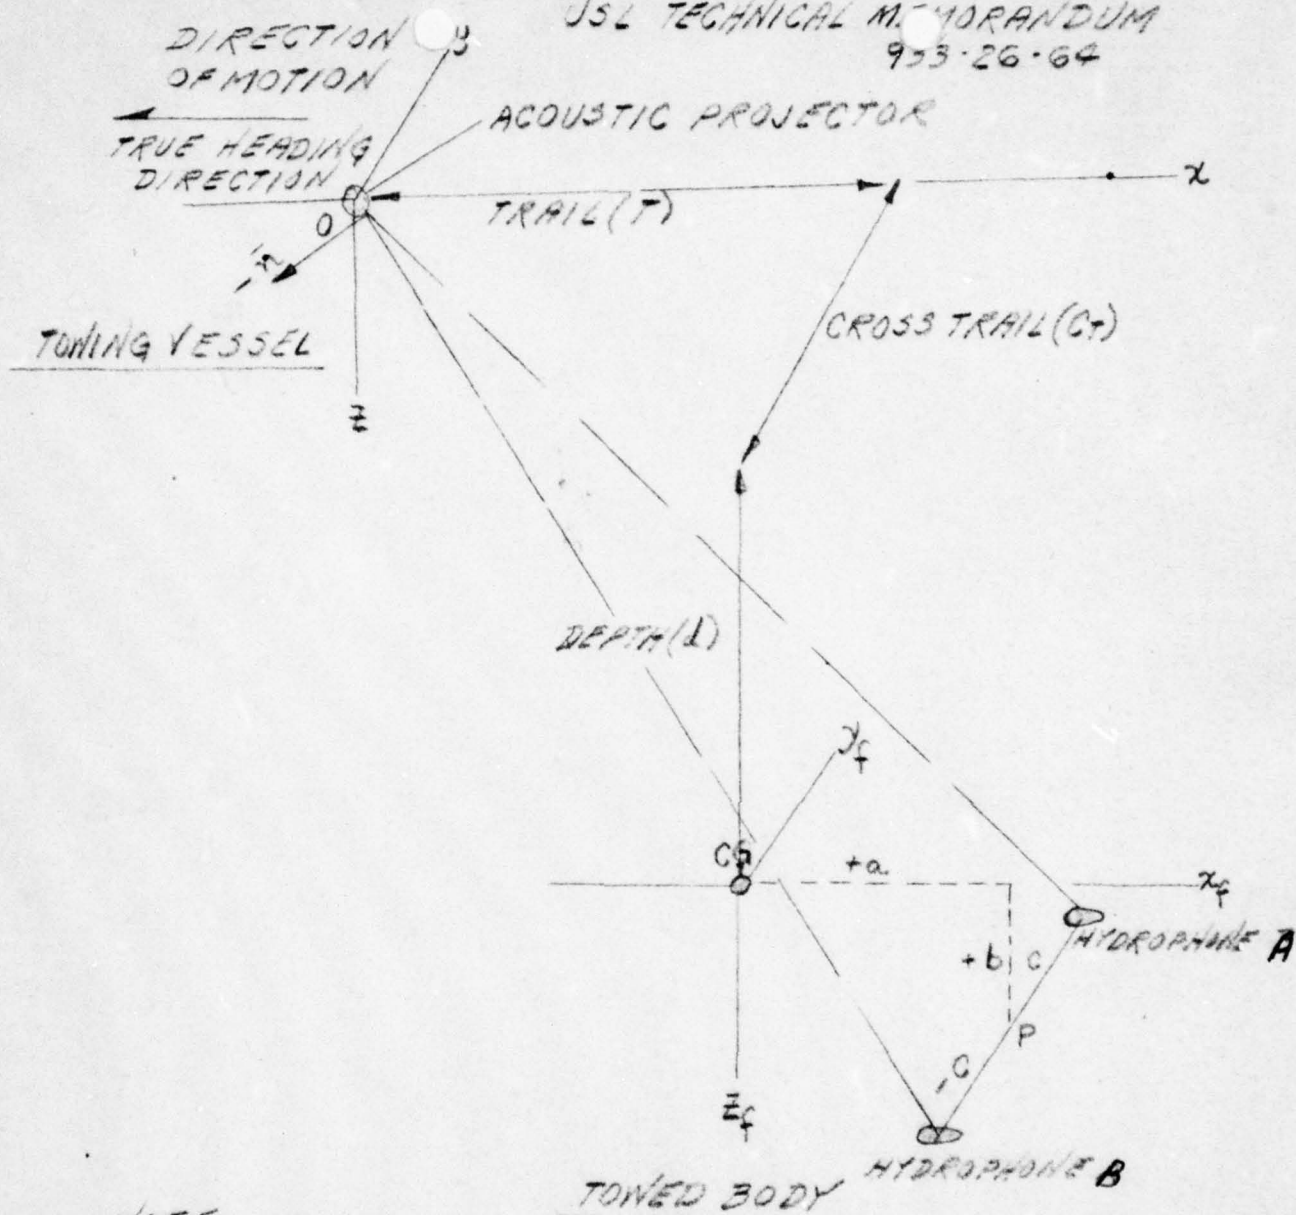 USL TECHNICAL MEMORANDUM
933-26-64
DIRECTION
OF MOTION
y
ACOUSTIC PROJECTOR
TRUE HEADING
DIRECTION
x
O
TRAIL(T)
CROSS TRAIL(CT)
TOWING VESSEL
z
DEPTH(d)
yf
CG
+a
xf
HYDROPHONE A
+b
c
P
-c
zf
HYDROPHONE B
TOWED BODY